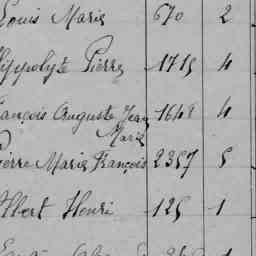 Louis Marie 670 2
Hippolyte Pierre 1715 4
François Auguste Jean 1648 4
Marie
Pierre Marie François 2357 5
Albert Henri 125 1